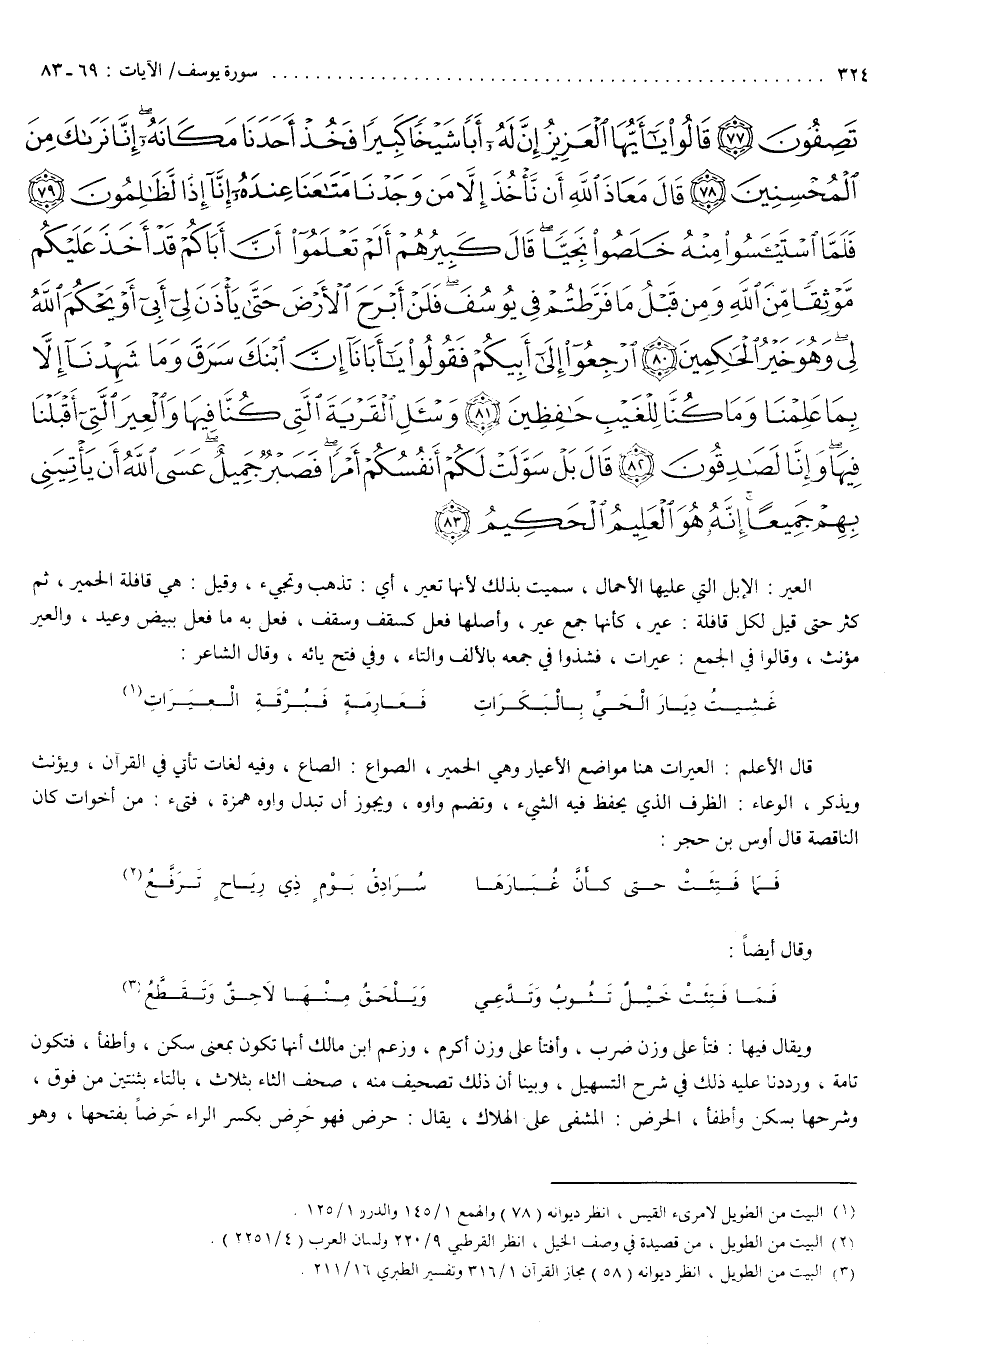 ٣٢٤ ........................................................ سورة يوسف/ الآيات : ٦٩ ـ ٨٣
تَصِفُونَ ﴿٧٧﴾ قَالُوا۟ يَٰٓأَيُّهَا ٱلْعَزِيزُ إِنَّ لَهُۥٓ أَبًا شَيْخًا كَبِيرًا فَخُذْ أَحَدَنَا مَكَانَهُۥٓ ۖ إِنَّا نَرَىٰكَ مِنَ
ٱلْمُحْسِنِينَ ﴿٧٨﴾ قَالَ مَعَاذَ ٱللَّهِ أَن نَّأْخُذَ إِلَّا مَن وَجَدْنَا مَتَٰعَنَا عِندَهُۥٓ إِنَّآ إِذًا لَّظَٰلِمُونَ ﴿٧٩﴾
فَلَمَّا ٱسْتَيْـَٔسُوا۟ مِنْهُ خَلَصُوا۟ نَجِيًّا ۖ قَالَ كَبِيرُهُمْ أَلَمْ تَعْلَمُوٓا۟ أَنَّ أَبَاكُمْ قَدْ أَخَذَ عَلَيْكُم
مَّوْثِقًا مِّنَ ٱللَّهِ وَمِن قَبْلُ مَا فَرَّطتُمْ فِى يُوسُفَ ۖ فَلَنْ أَبْرَحَ ٱلْأَرْضَ حَتَّىٰ يَأْذَنَ لِىٓ أَبِىٓ أَوْ يَحْكُمَ ٱللَّهُ
لِى ۖ وَهُوَ خَيْرُ ٱلْحَٰكِمِينَ ﴿٨٠﴾ ٱرْجِعُوٓا۟ إِلَىٰٓ أَبِيكُمْ فَقُولُوا۟ يَٰٓأَبَانَآ إِنَّ ٱبْنَكَ سَرَقَ وَمَا شَهِدْنَآ إِلَّا
بِمَا عَلِمْنَا وَمَا كُنَّا لِلْغَيْبِ حَٰفِظِينَ ﴿٨١﴾ وَسْـَٔلِ ٱلْقَرْيَةَ ٱلَّتِى كُنَّا فِيهَا وَٱلْعِيرَ ٱلَّتِىٓ أَقْبَلْنَا
فِيهَا ۖ وَإِنَّا لَصَٰدِقُونَ ﴿٨٢﴾ قَالَ بَلْ سَوَّلَتْ لَكُمْ أَنفُسُكُمْ أَمْرًا ۖ فَصَبْرٌ جَمِيلٌ ۖ عَسَى ٱللَّهُ أَن يَأْتِيَنِى
بِهِمْ جَمِيعًا ۚ إِنَّهُۥ هُوَ ٱلْعَلِيمُ ٱلْحَكِيمُ ﴿٨٣﴾
العير : الإبل التي عليها الأحمال ، سميت بذلك لأنها تعير ، أي : تذهب وتجيء ، وقيل : هي قافلة الحمير ، ثم
كثر حتى قيل لكل قافلة : عير ، كأنها جمع عير ، وأصلها فعل كسقف وسقف ، فعل به ما فعل ببيض وعيد ، والعير
مؤنث ، وقالوا في الجمع : عيرات ، فشذوا في جمعه بالألف والتاء ، وفي فتح يائه ، وقال الشاعر :
غَشِيتُ دِيَارَ الْحَيِّ بِالْبَكَرَاتِ فَعَارِمَةٍ فَبُرْقَةِ الْعِيَرَاتِ(١)
قال الأعلم : العيرات هنا مواضع الأعيار وهي الحمير ، الصواع : الصاع ، وفيه لغات تأتي في القرآن ، ويؤنث
ويذكر ، الوعاء : الظرف الذي يحفظ فيه الشيء ، وتضم واوه ، ويجوز أن تبدل واوه همزة ، فتىء : من أخوات كان
الناقصة قال أوس بن حجر :
فَمَا فَتِئَتْ حتى كَأَنَّ غُبَارَهَا سُرَادِقُ يَوْمٍ ذِي رِيَاحٍ تَرَفَّعُ(٢)
وقال أيضاً :
فَمَا فَتِئَتْ خَيْلٌ تَثُوبُ وَتَدَّعِي وَيَلْحَقُ مِنْهَا لاَحِقٌ وَتَقَطَّعُ(٣)
ويقال فيها : فتأ على وزن ضرب ، وأفتأ على وزن أكرم ، وزعم ابن مالك أنها تكون بمعنى سكن ، وأطفأ ، فتكون
تامة ، ورددنا عليه ذلك في شرح التسهيل ، وبينا أن ذلك تصحيف منه ، صحف الثاء بثلاث ، بالتاء بثنتين من فوق ،
وشرحها بسكن وأطفأ ، الحرض : المشفى على الهلاك ، يقال : حرض فهو حَرِض بكسر الراء حَرضاً بفتحها ، وهو
(١) البيت من الطويل لامرىء القيس ، انظر ديوانه ( ٧٨ ) والهمع ١٤٥/١ والدرر ١٢٥/١ .
(٢) البيت من الطويل ، من قصيدة في وصف الخيل ، انظر القرطبي ٢٢٠/٩ ولسان العرب ( ٢٢٥١/٤ ) .
(٣) البيت من الطويل ، انظر ديوانه ( ٥٨ ) مجاز القرآن ٣١٦/١ وتفسير الطبري ٢١١/١٦ .